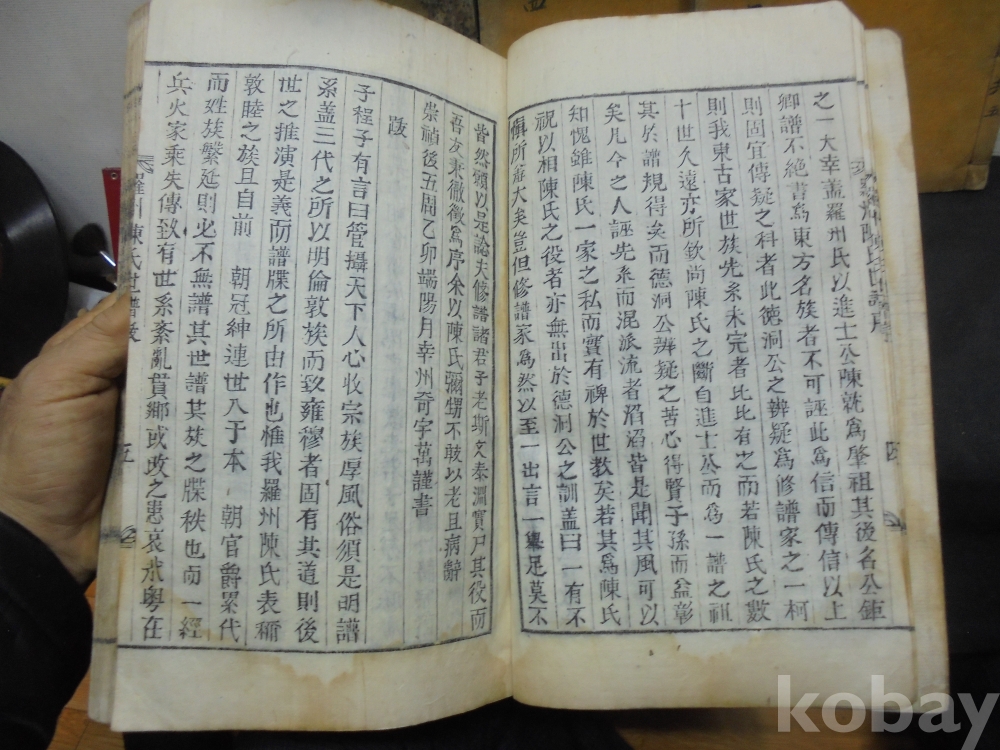 之一大幸盖羅州氏以進士公陳就爲肇祖其後名公鉅
卿譜不絶書爲東方名族者不可誣此爲信而傳信以上
則固宜傳疑之科者此德洞公之辨疑爲修譜家之一柯
則我東古家世族先系未完者比比有之而若陳氏之數
十世久遠亦所欽尚陳氏之斷自進士公而爲一譜之祖
其於譜規得矣而德洞公辨疑之苦心得賢子孫而益彰
矣凡今之人誣先系而混派流者滔滔皆是聞其風可以
知愧雖陳氏一家之私而實有裨於世教矣若其爲陳氏
祝以相陳氏之役者亦無出於德洞公之訓盖曰一有不
愼所誣大矣豈但修譜家爲然以至一出言一擧足莫不
皆然願以是諗夫修譜諸君子老斯文泰淵實尸其役而
吾友來徹徵爲序余以陳氏彌甥不敢以老且病辭
崇禎後五周乙卯端陽月幸州奇宇萬謹書
跋
子程子有言曰管攝天下人心收宗族厚風俗須是明譜
系盖三代之所以明倫敦族而致雍穆者固有其道則後
世之推演是義而譜牒之所由作也惟我羅州陳氏表稱
敦睦之族且自前 朝冠紳連世入于本 朝官爵累代
而姓族繁延則必不無譜其世譜其族之牒秩也而一經
兵火家乘失傳致有世系紊亂貫鄉或改之患哀我粤在
羅州陳氏世譜跋
五
羅州陳氏世譜序
四
kobay